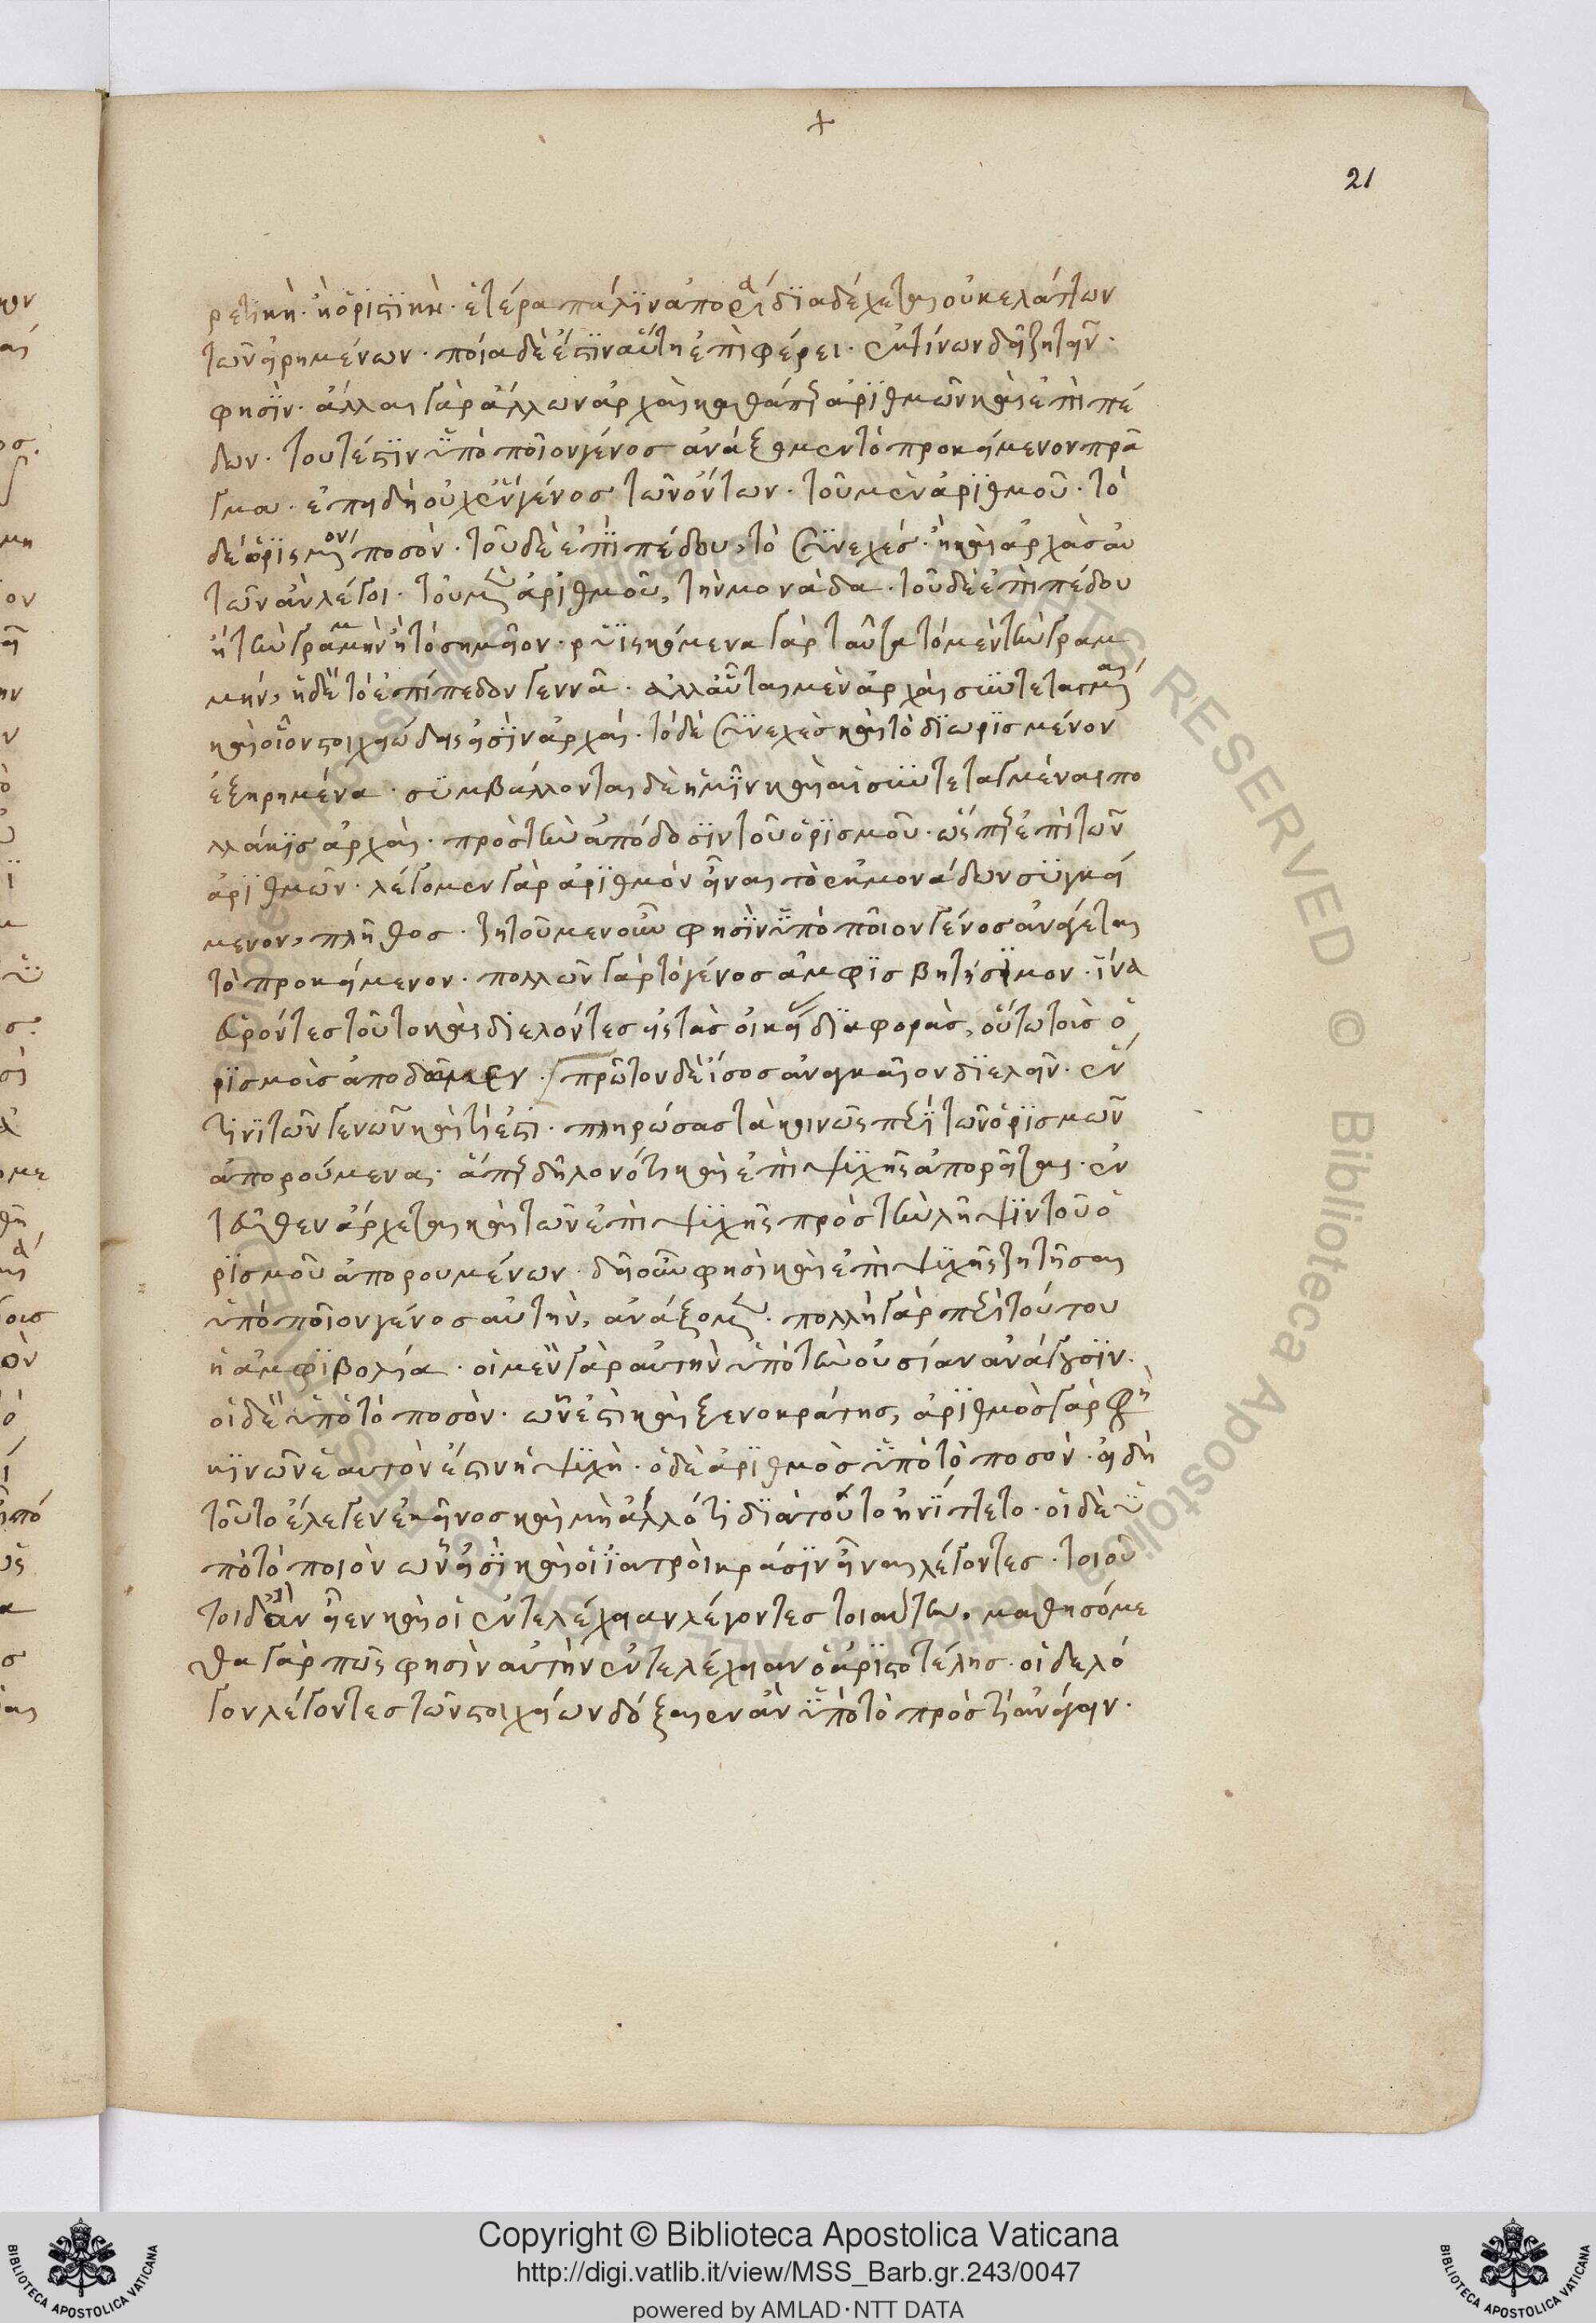 21
ρετικὴ. ἢ ὁριστικὴ. ἑτέρα πάλιν ἀπορία διαδέχεται οὐκ ἐλάττων
τῶν εἰρημένων. ποία δὲ ἐστὶν αὕτη ἐπιφέρει. ἐκ τίνων δεῖ ζητεῖν.
φησὶν. ἄλλαι γὰρ ἄλλων ἀρχαὶ καθάπερ ἀριθμῶν καὶ ἐπιπέ
δων. τουτέστιν ὑπὸ ποῖον γένος ἀνάξομεν τὸ προκείμενον πρᾶ
γμα. ἐπειδὴ οὐχ ἓν γένος τῶν ὄντων. τοῦ μὲν ἀριθμοῦ. τὸ
διωρισμένον ποσὸν. τοῦ δὲ ἐπιπέδου, τὸ συνεχές. ἢ καὶ ἀρχὰς αὐ
τῶν ἂν λέγοι. τοῦ μὲν ἀριθμοῦ, τὴν μονάδα. τοῦ δὲ ἐπιπέδου
ἢ τὴν γραμμὴν ἢ τὸ σημεῖον. ῥυϊσκόμενα γὰρ ταῦτα τὸ μὲν τὴν γραμ
μήν, ἡ δὲ τὸ ἐπίπεδον γεννᾶ. ἀλλ' αὗται μὲν ἀρχαὶ συντεταγμέναι
καὶ οἷον στοιχειώδεις εἰσὶν ἀρχαί. τὸ δὲ συνεχὲς καὶ τὸ διωρισμένον
ἐξῃρημένα. συμβάλλονται δὲ ἡμῖν καὶ αἱ συντεταγμέναι πο
λλάκις ἀρχαὶ. πρὸς τὴν ἀπόδοσιν τοῦ ὁρισμοῦ. ὥσπερ ἐπὶ τῶν
ἀριθμῶν. λέγομεν γὰρ ἀριθμὸν εἶναι τὸ ἐκ μονάδων συγκεί
μενον, πλῆθος. ζητοῦμεν οὖν φησὶν ὑπὸ ποῖον γένος ἀνάγεται
τὸ προκείμενον. πολλῶν γὰρ τὸ γένος ἀμφισβητήσιμον. ἵνα
εὑρόντες τοῦτο καὶ διελόντες εἰς τὰς οἰκείας διαφορὰς, οὕτω τοὺς ὁ
ρισμοὺς ἀποδῶμεν. πρῶτον δὲ ἴσως ἀναγκαῖον διελεῖν. ἐν
τίνι τῶν γενῶν καὶ τί ἐστι. πληρώσας τὰ κοινῶς περὶ τῶν ὁρισμῶν
ἀπορούμενα. ἅπερ δηλονότι καὶ ἐπὶ ψυχῆς ἀπορεῖται. ἐν
τεῦθεν ἄρχεται καὶ τῶν ἐπὶ ψυχῆς πρὸς τὴν λῆψιν τοῦ ὁ
ρισμοῦ ἀπορουμένων. δεῖ οὖν φησὶ καὶ ἐπὶ ψυχῆς ζητῆσαι
ὑπὸ ποῖον γένος αὐτὴν, ἀνάξομεν. πολλὴ γὰρ περὶ τούτου
ἡ ἀμφιβολία. οἱ μὲν γὰρ αὐτὴν ὑπὸ τὴν οὐσίαν ἀνάγουσιν.
οἱ δὲ ὑπὸ τὸ ποσὸν. ὧν ἐστὶ καὶ ξενοκράτης, ἀριθμὸς γὰρ φη
κινῶν ἑαυτὸν ἐστιν ἡ ψυχὴ. ὁ δὲ ἀριθμὸς ὑπὸ τὸ ποσὸν. εἰ δὴ
τοῦτο ἔλεγεν ἐκεῖνος καὶ μὴ ἄλλό τι διὰ τούτο ᾐνίττετο. οἱ δὲ ὑ
πὸ τὸ ποιὸν ὧν εἰσὶ καὶ οἱ ἰατροὶ κρᾶσιν εἶναι λέγοντες. τοιοῦ
τοι δ' ἂν εἶεν καὶ οἱ ἐντελέχειαν λέγοντες τοιαύτην. μαθησόμε
θα γὰρ πῶς φησὶν αὐτὴν ἐντελέχειαν ὁ ἀριστοτέλης. οἱ δὲ λό
γον λέγοντες τῶν στοιχείων δόξαιεν ἂν ὑπὸ τὸ πρός τι ἀνάγειν.
Copyright © Biblioteca Apostolica Vaticana
http://digi.vatlib.it/view/MSS_Barb.gr.243/0047
powered by AMLAD·NTT DATA